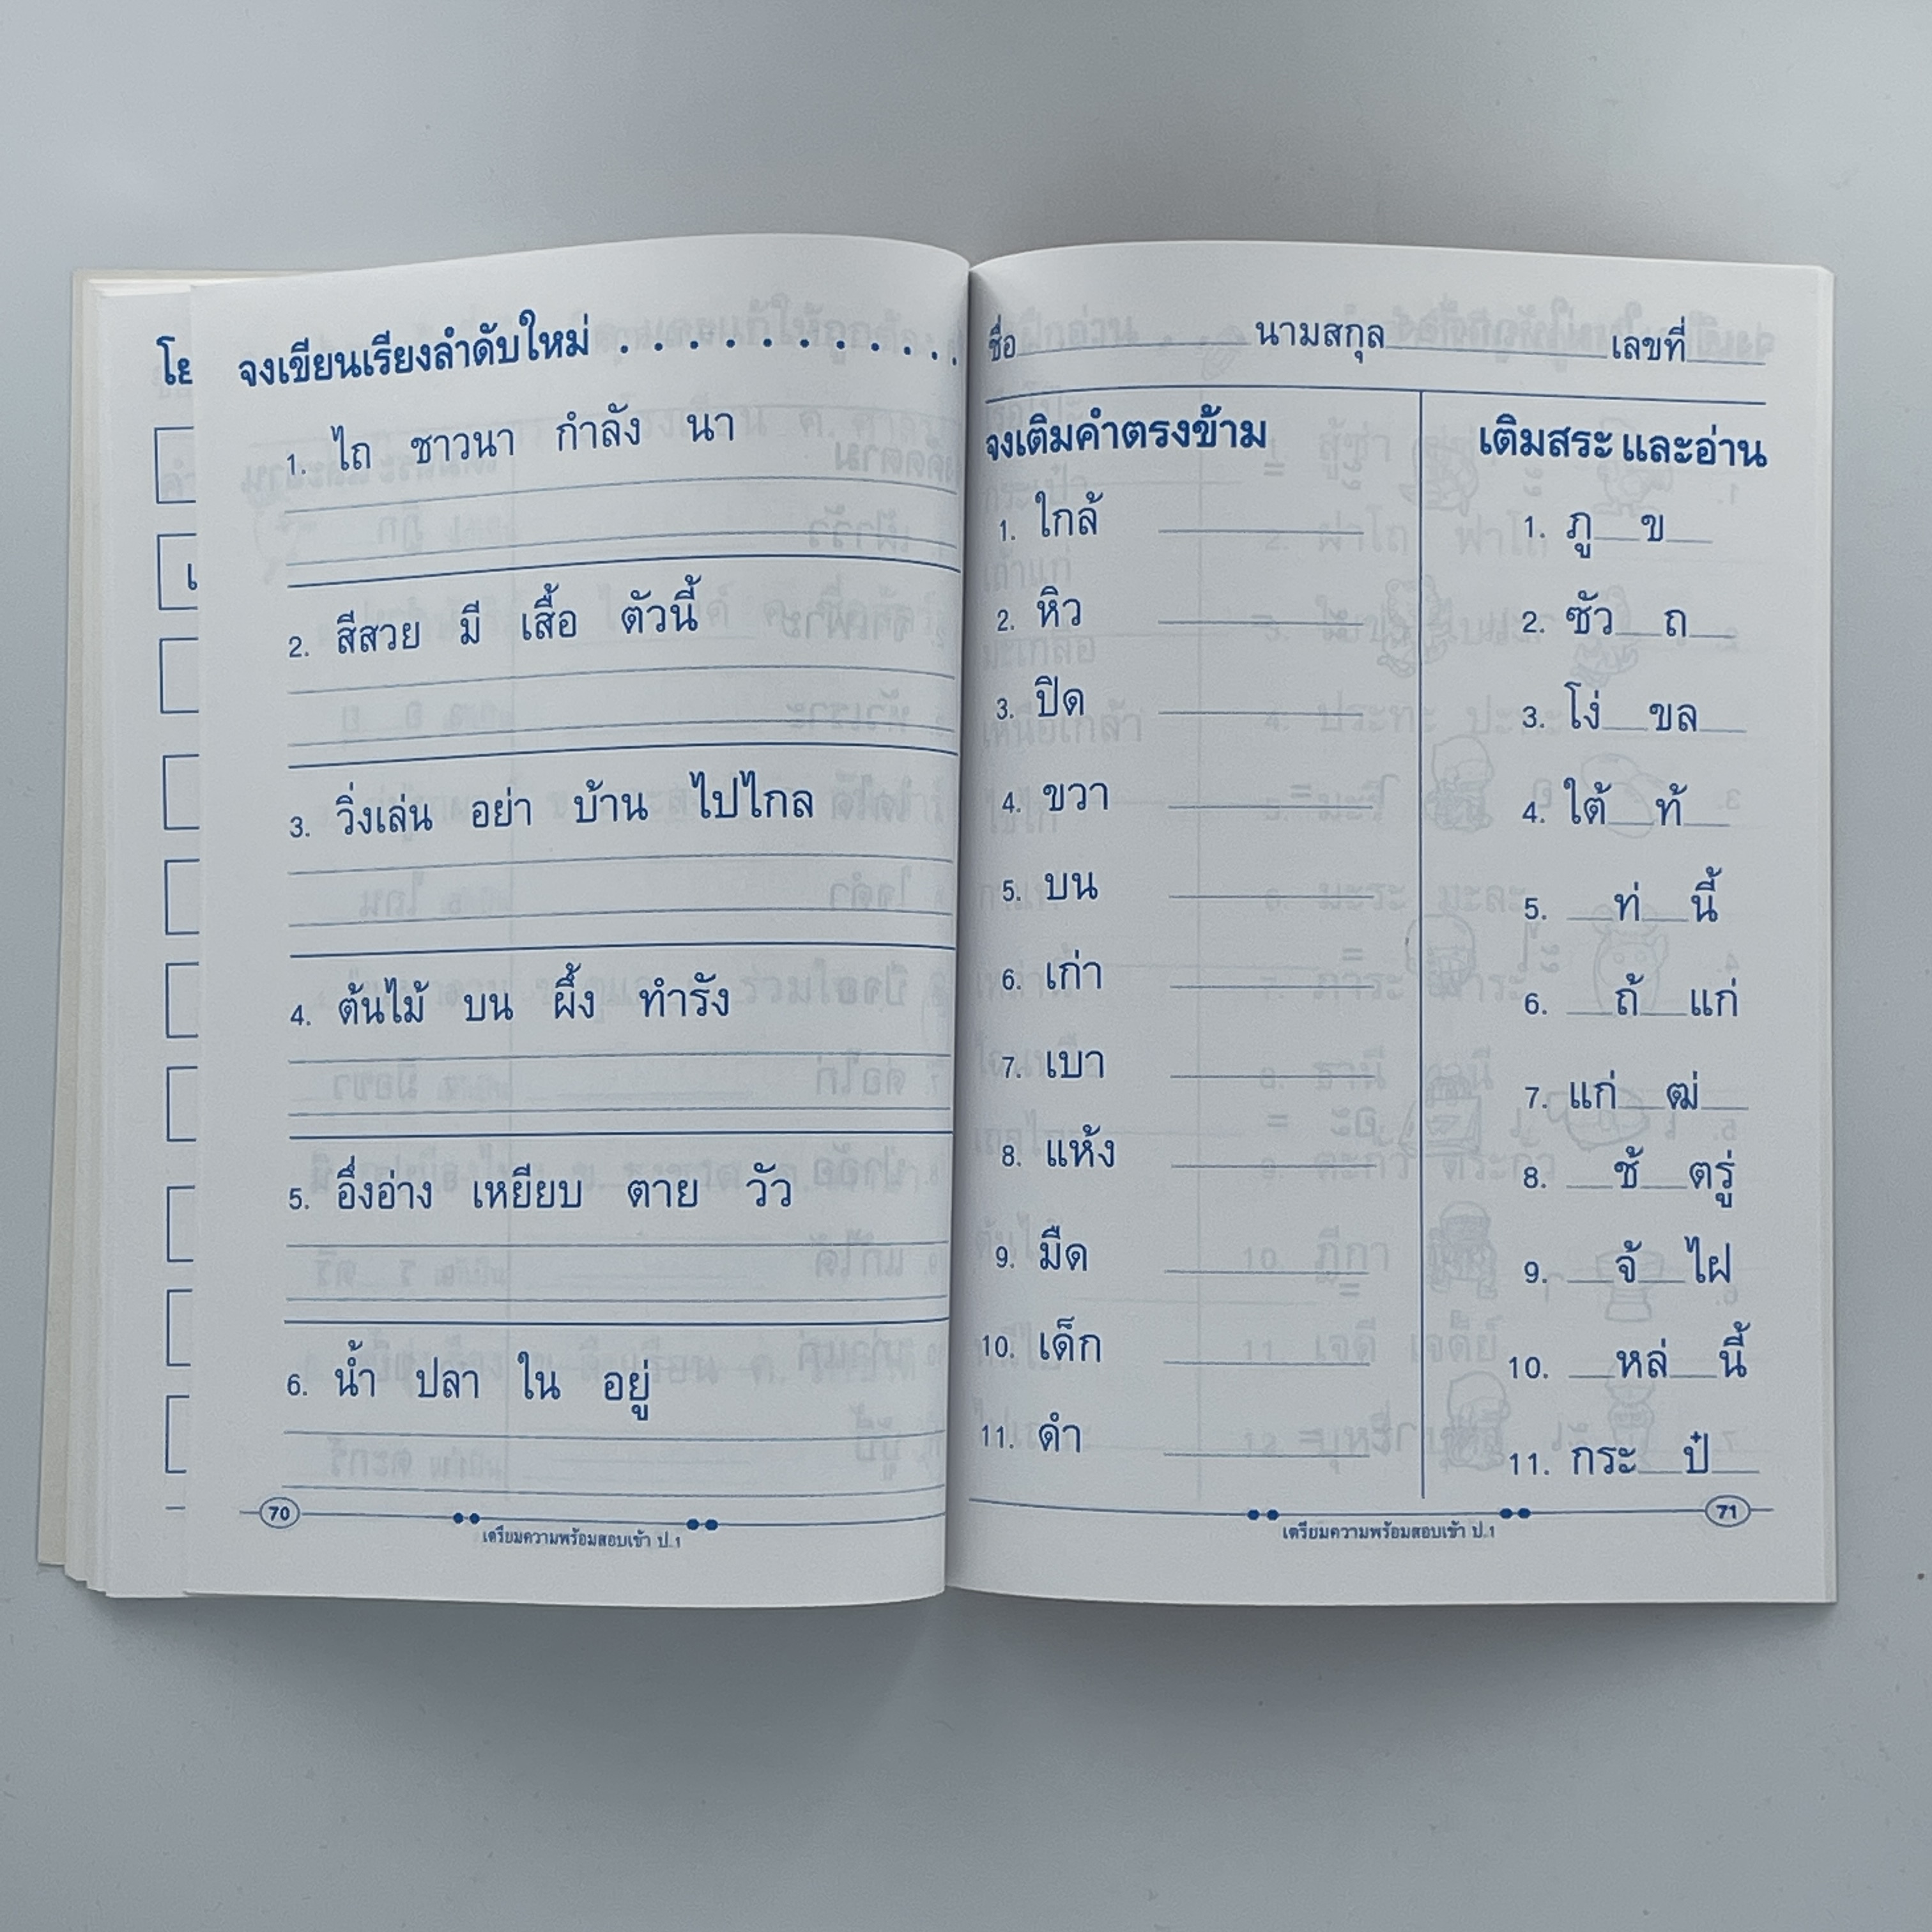 จงเขียนเรียงลำดับใหม่ . . . . . . . . . .
1. ไถ ชาวนา กำลัง นา
2. สีสวย มี เสื้อ ตัวนี้
3. วิ่งเล่น อย่า บ้าน ไปไกล
4. ต้นไม้ บน ผึ้ง ทำรัง
5. อึ่งอ่าง เหยียบ ตาย วัว
6. น้ำ ปลา ใน อยู่
70
เตรียมความพร้อมสอบเข้า ป.1
ชื่อ นามสกุล เลขที่
จงเติมคำตรงข้าม
1. ใกล้
2. หิว
3. ปิด
4. ขวา
5. บน
6. เก่า
7. เบา
8. แห้ง
9. มืด
10. เด็ก
11. ดำ
เติมสระ และอ่าน
1. ภู__ข__
2. ซัว__ถ__
3. โง่__ขล__
4. ใต้__ท้__
5. __ท่__นี้
6. __ถ้__แก่
7. แก่__ฒ่__
8. __ช้__ตรู่
9. __จ้__ไฝ
10. __หล่__นี้
11. กระ__ป๋__
เตรียมความพร้อมสอบเข้า ป.1
71